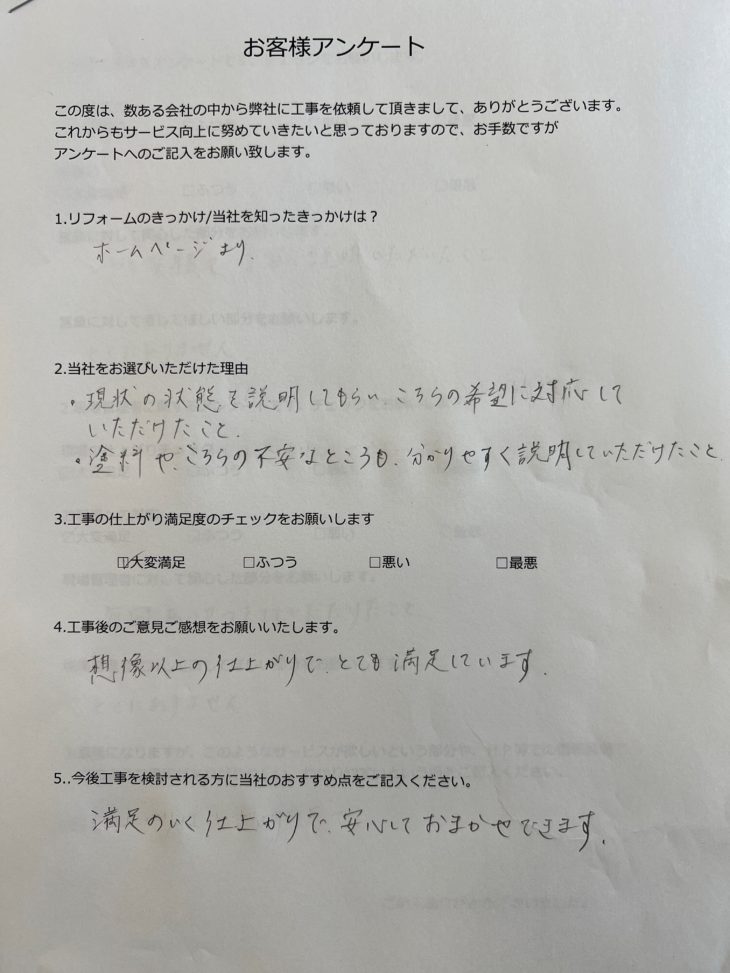 お客様アンケート
この度は、数ある会社の中から弊社に工事を依頼して頂きまして、ありがとうございます。
これからもサービス向上に努めていきたいと思っておりますので、お手数ですが
アンケートへのご記入をお願い致します。
1.リフォームのきっかけ/当社を知ったきっかけは？
ホームページより.
2.当社をお選びいただけた理由
・現状の状態を説明してもらい、こちらの希望に対応して
いただけたこと.
・塗料や、こちらの不安なところも、分かりやすく説明していただけたこと.
3.工事の仕上がり満足度のチェックをお願いします
☑大変満足 □ふつう □悪い □最悪
4.工事後のご意見ご感想をお願いいたします。
想像以上の仕上がりで、とても満足しています.
5..今後工事を検討される方に当社のおすすめ点をご記入ください。
満足のいく仕上がりで、安心しておまかせできます.